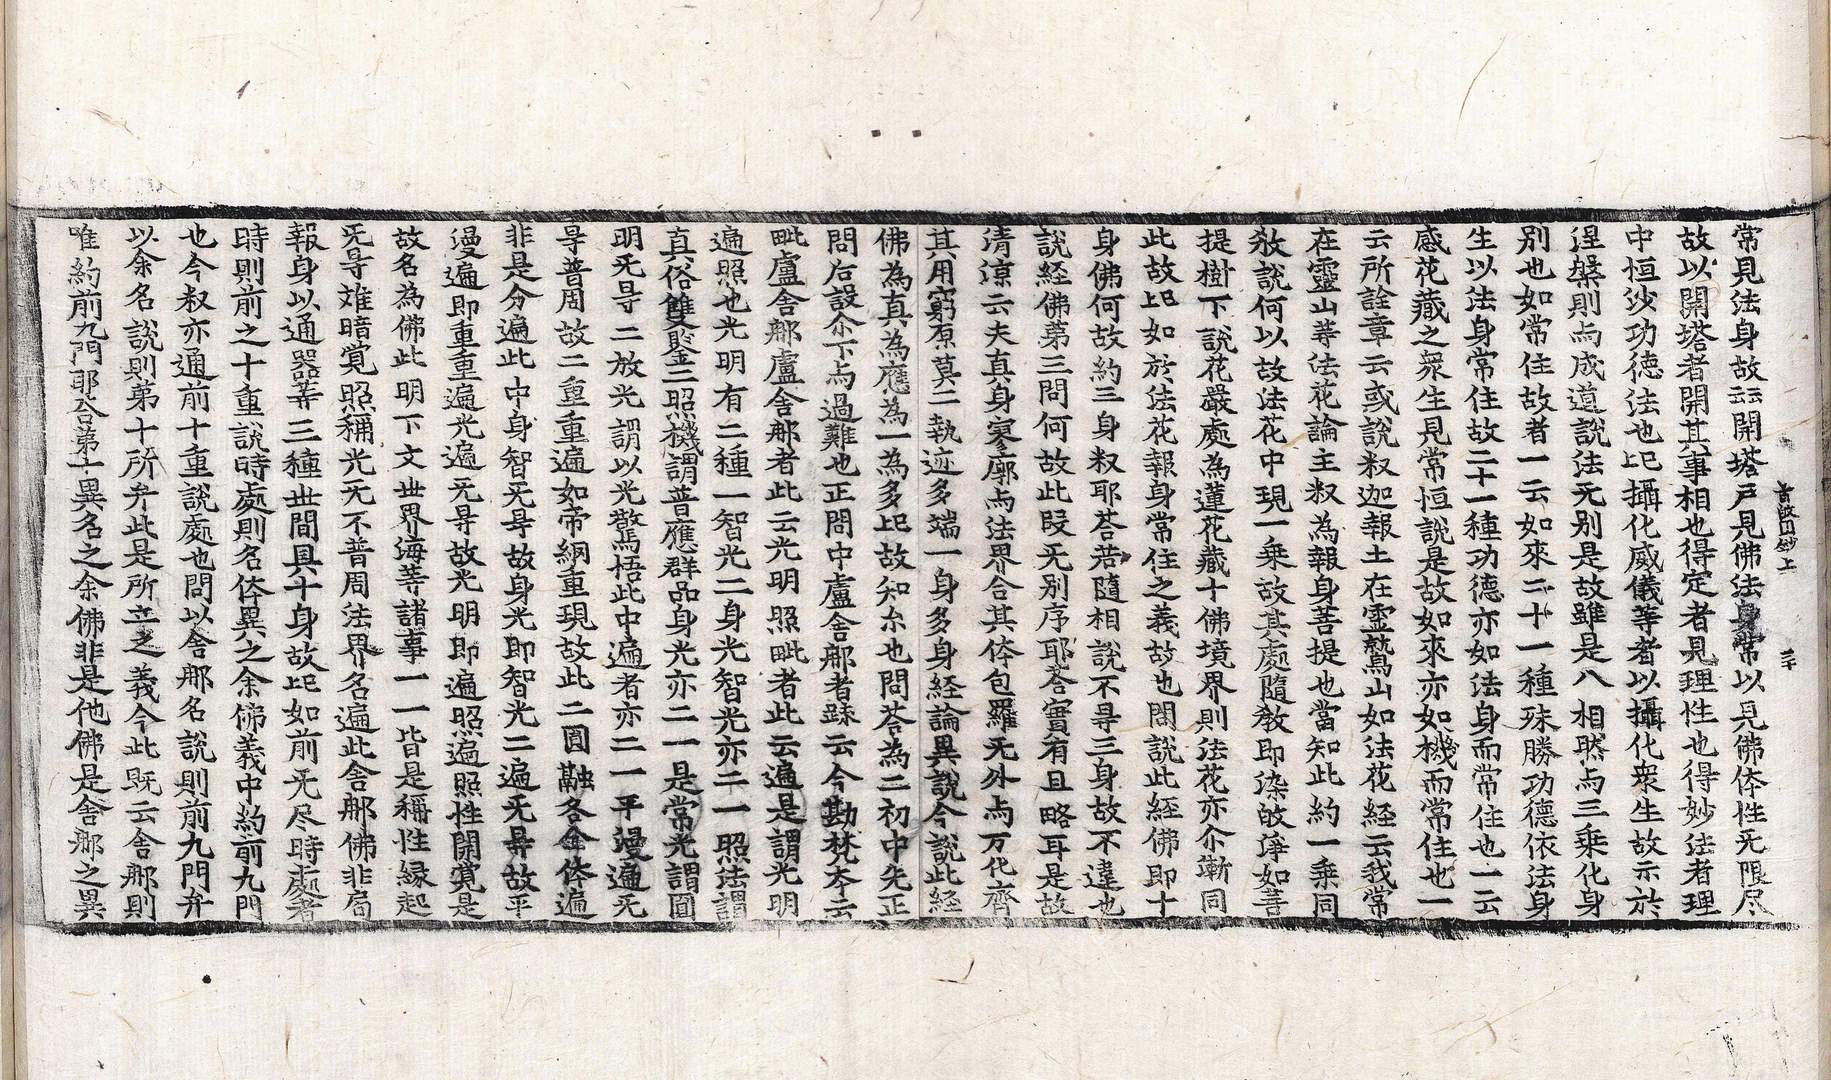 常見法身故云開塔戶見佛法身常以見佛体性无限尽
故以開塔者開其事相也得定者見理性也得妙法者理
中恒沙功德法也皀攝化威儀等者以攝化衆生故示於
涅槃則与成道說法无别是故雖是八相然与三乗化身
别也如常住故者一云如來二十一種殊勝功德依法身
生以法身常住故二十一種功德亦如法身而常住也一云
感花藏之衆生見常恒說是故如來亦如機而常住也一
云所詮章云或說釈迦報土在霊鷲山如法花経云我常
在靈山等法花論主釈為報身菩提也當知此約一乗同
敎說何以故法花中現一乗故其處隨敎即染故淨如菩
提樹下說花嚴處為蓮花藏十佛境界則法花亦尒漸同
此故皀如於法花報身常住之義故也問說此経佛即十
身佛何故約三身釈耶荅若隨相說不㝵三身故不違也
說経佛第三問何故此段无别序耶荅實有且略耳是故
清凉云夫真身寥廓与法界合其体包羅无外与万化齊
其用窮原莫二執迹多端一身多身経論異說今說此経
佛為真為應為一為多皀故知尒也問荅為二初中先正
問后設尒下与過難也正問中盧舍那者䟽云今勘梵本云
毗盧舍那盧舍那者此云光明照毗者此云遍是謂光明
遍照也光明有二種一智光二身光智光亦二一照法謂
真俗雙鍳二照機謂普應群品身光亦二一是常光謂圎
明无㝵二放光謂以光驚悟此中遍者亦二一平漫遍无
㝵普周故二重重遍如帝網重現故此二圎融各全体遍
非是分遍此中身智无㝵故身光即智光二遍无㝵故平
漫遍即重重遍光遍无㝵故光明即遍照遍照性開覚是
故名為佛此明下文世界海等諸事一一皆是稱性緣起
无㝵雖暗覚照稱光无不普周法界名遍此舍那佛非局
報身以通器等三種世間具十身故皀如前无尽時處者
時則前之十重說時處則名体異之余佛義中約前九門
也今叙亦通前十重說處也問以舍那名說則前九門弁
以余名說則第十所弁此是所立之義今此既云舍那則
唯約前九門耶荅第十異名之余佛非是他佛是舍那之異